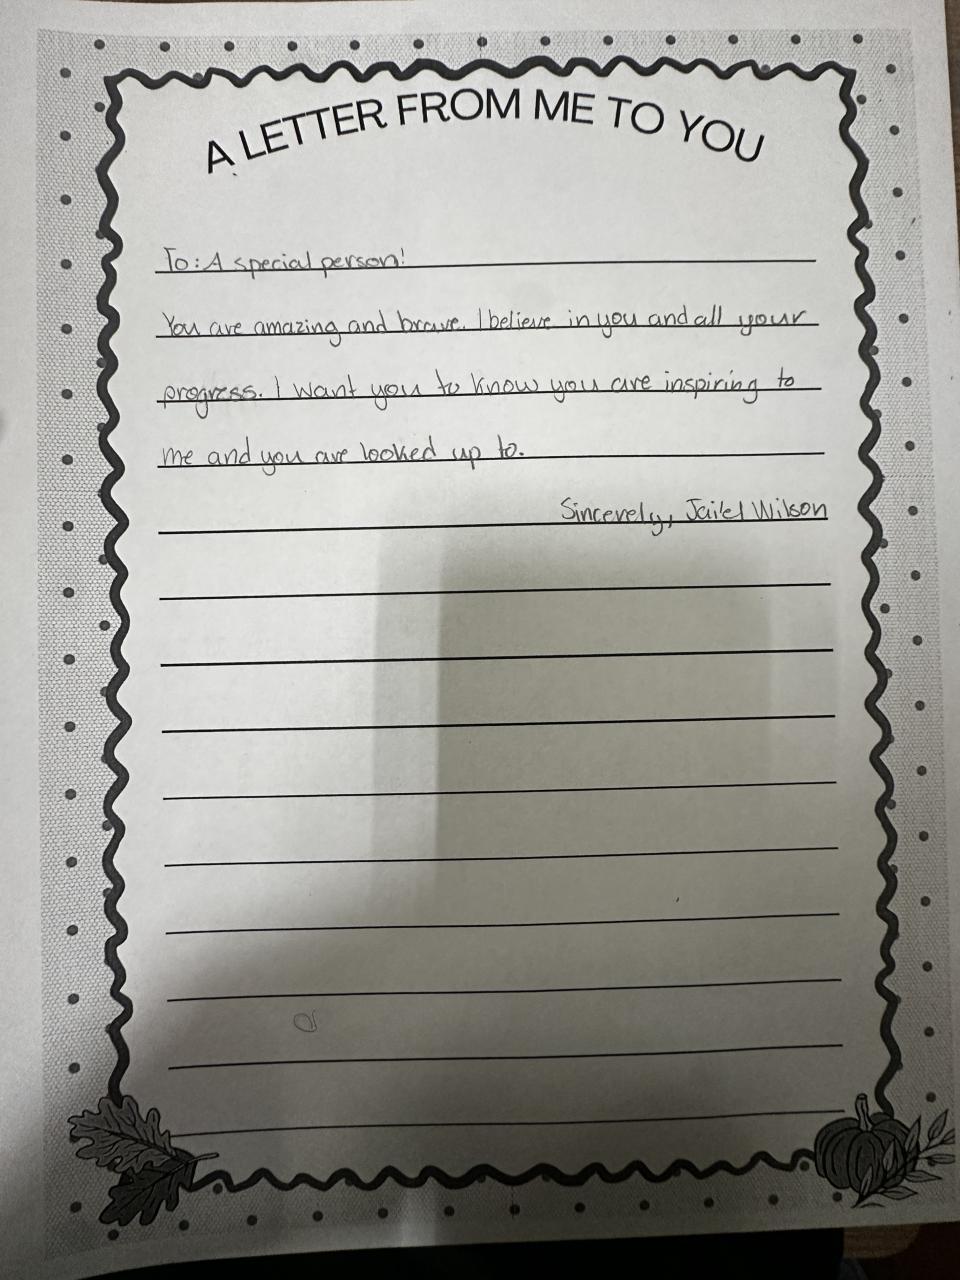 A LETTER FROM ME TO YOU
To: A special person!
You are amazing and brave. I believe in you and all your
progress. I want you to know you are inspiring to
me and you are looked up to.
Sincerely, Wilson